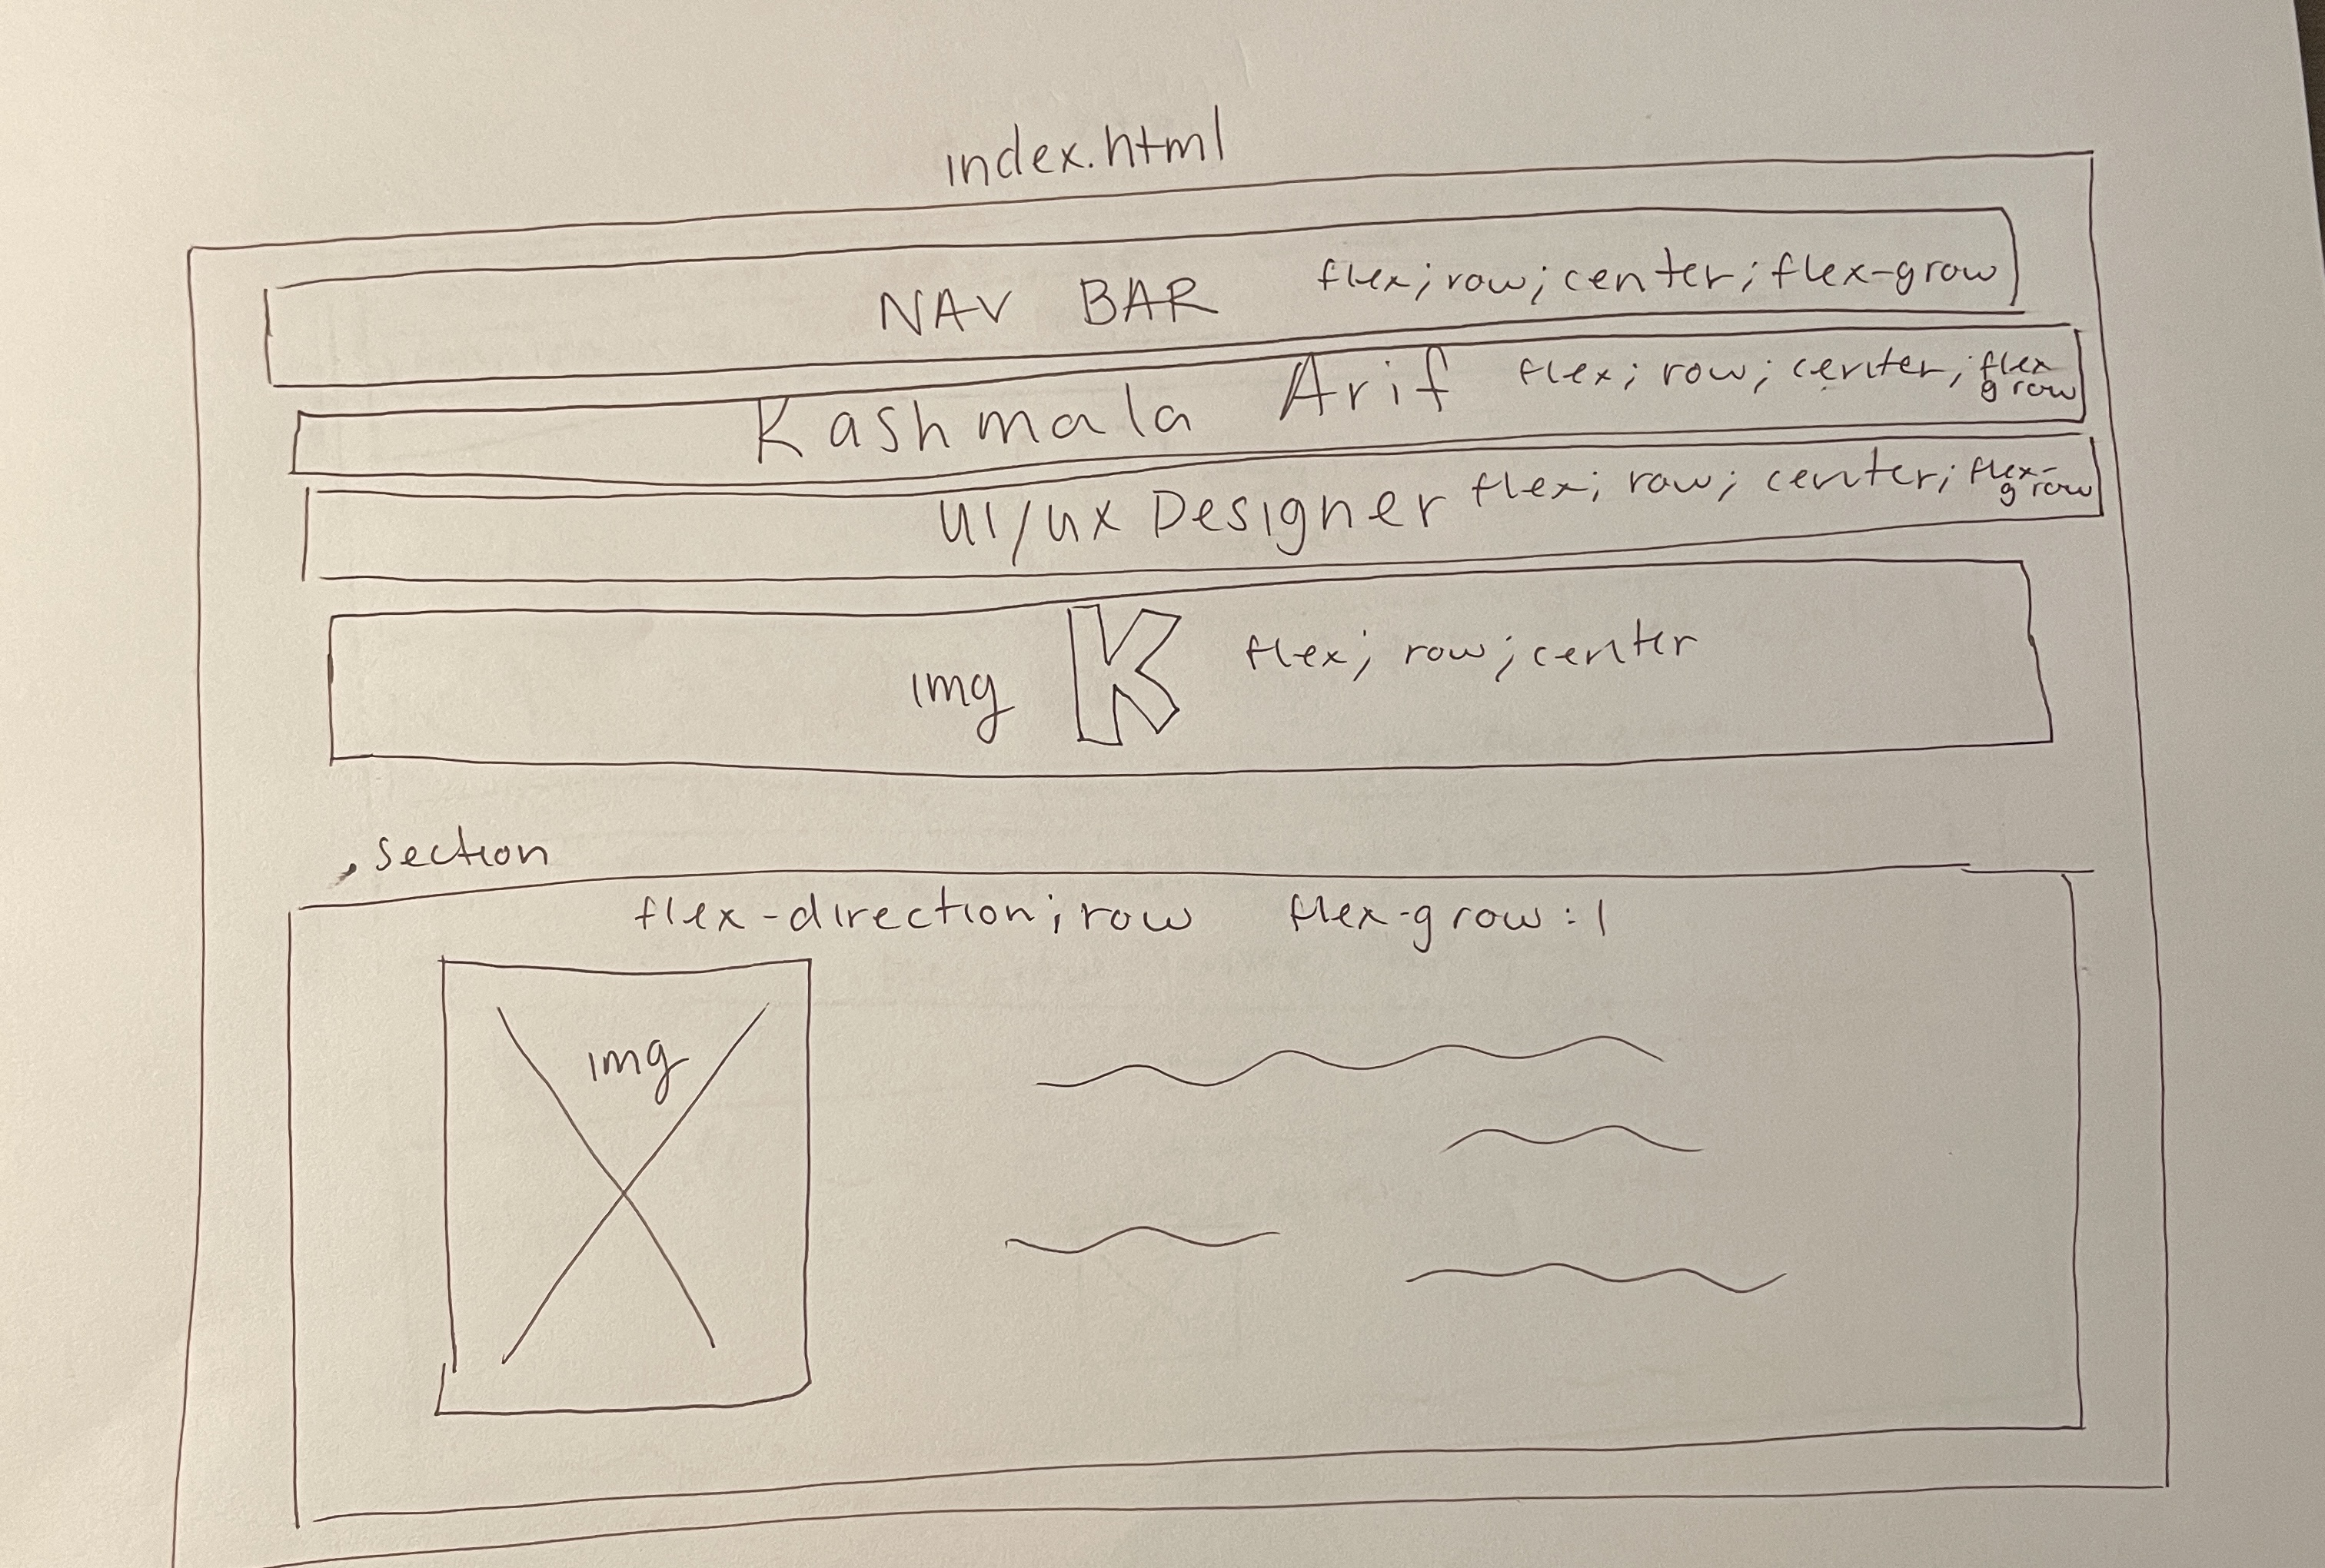 index.html
NAV BAR flex; row; center; flex-grow
Kashmala Arif flex; row; center; flex grow
UI/UX Designer flex; row; center; flex-grow
img K flex; row; center
.section
flex-direction; row flex-grow: 1
img